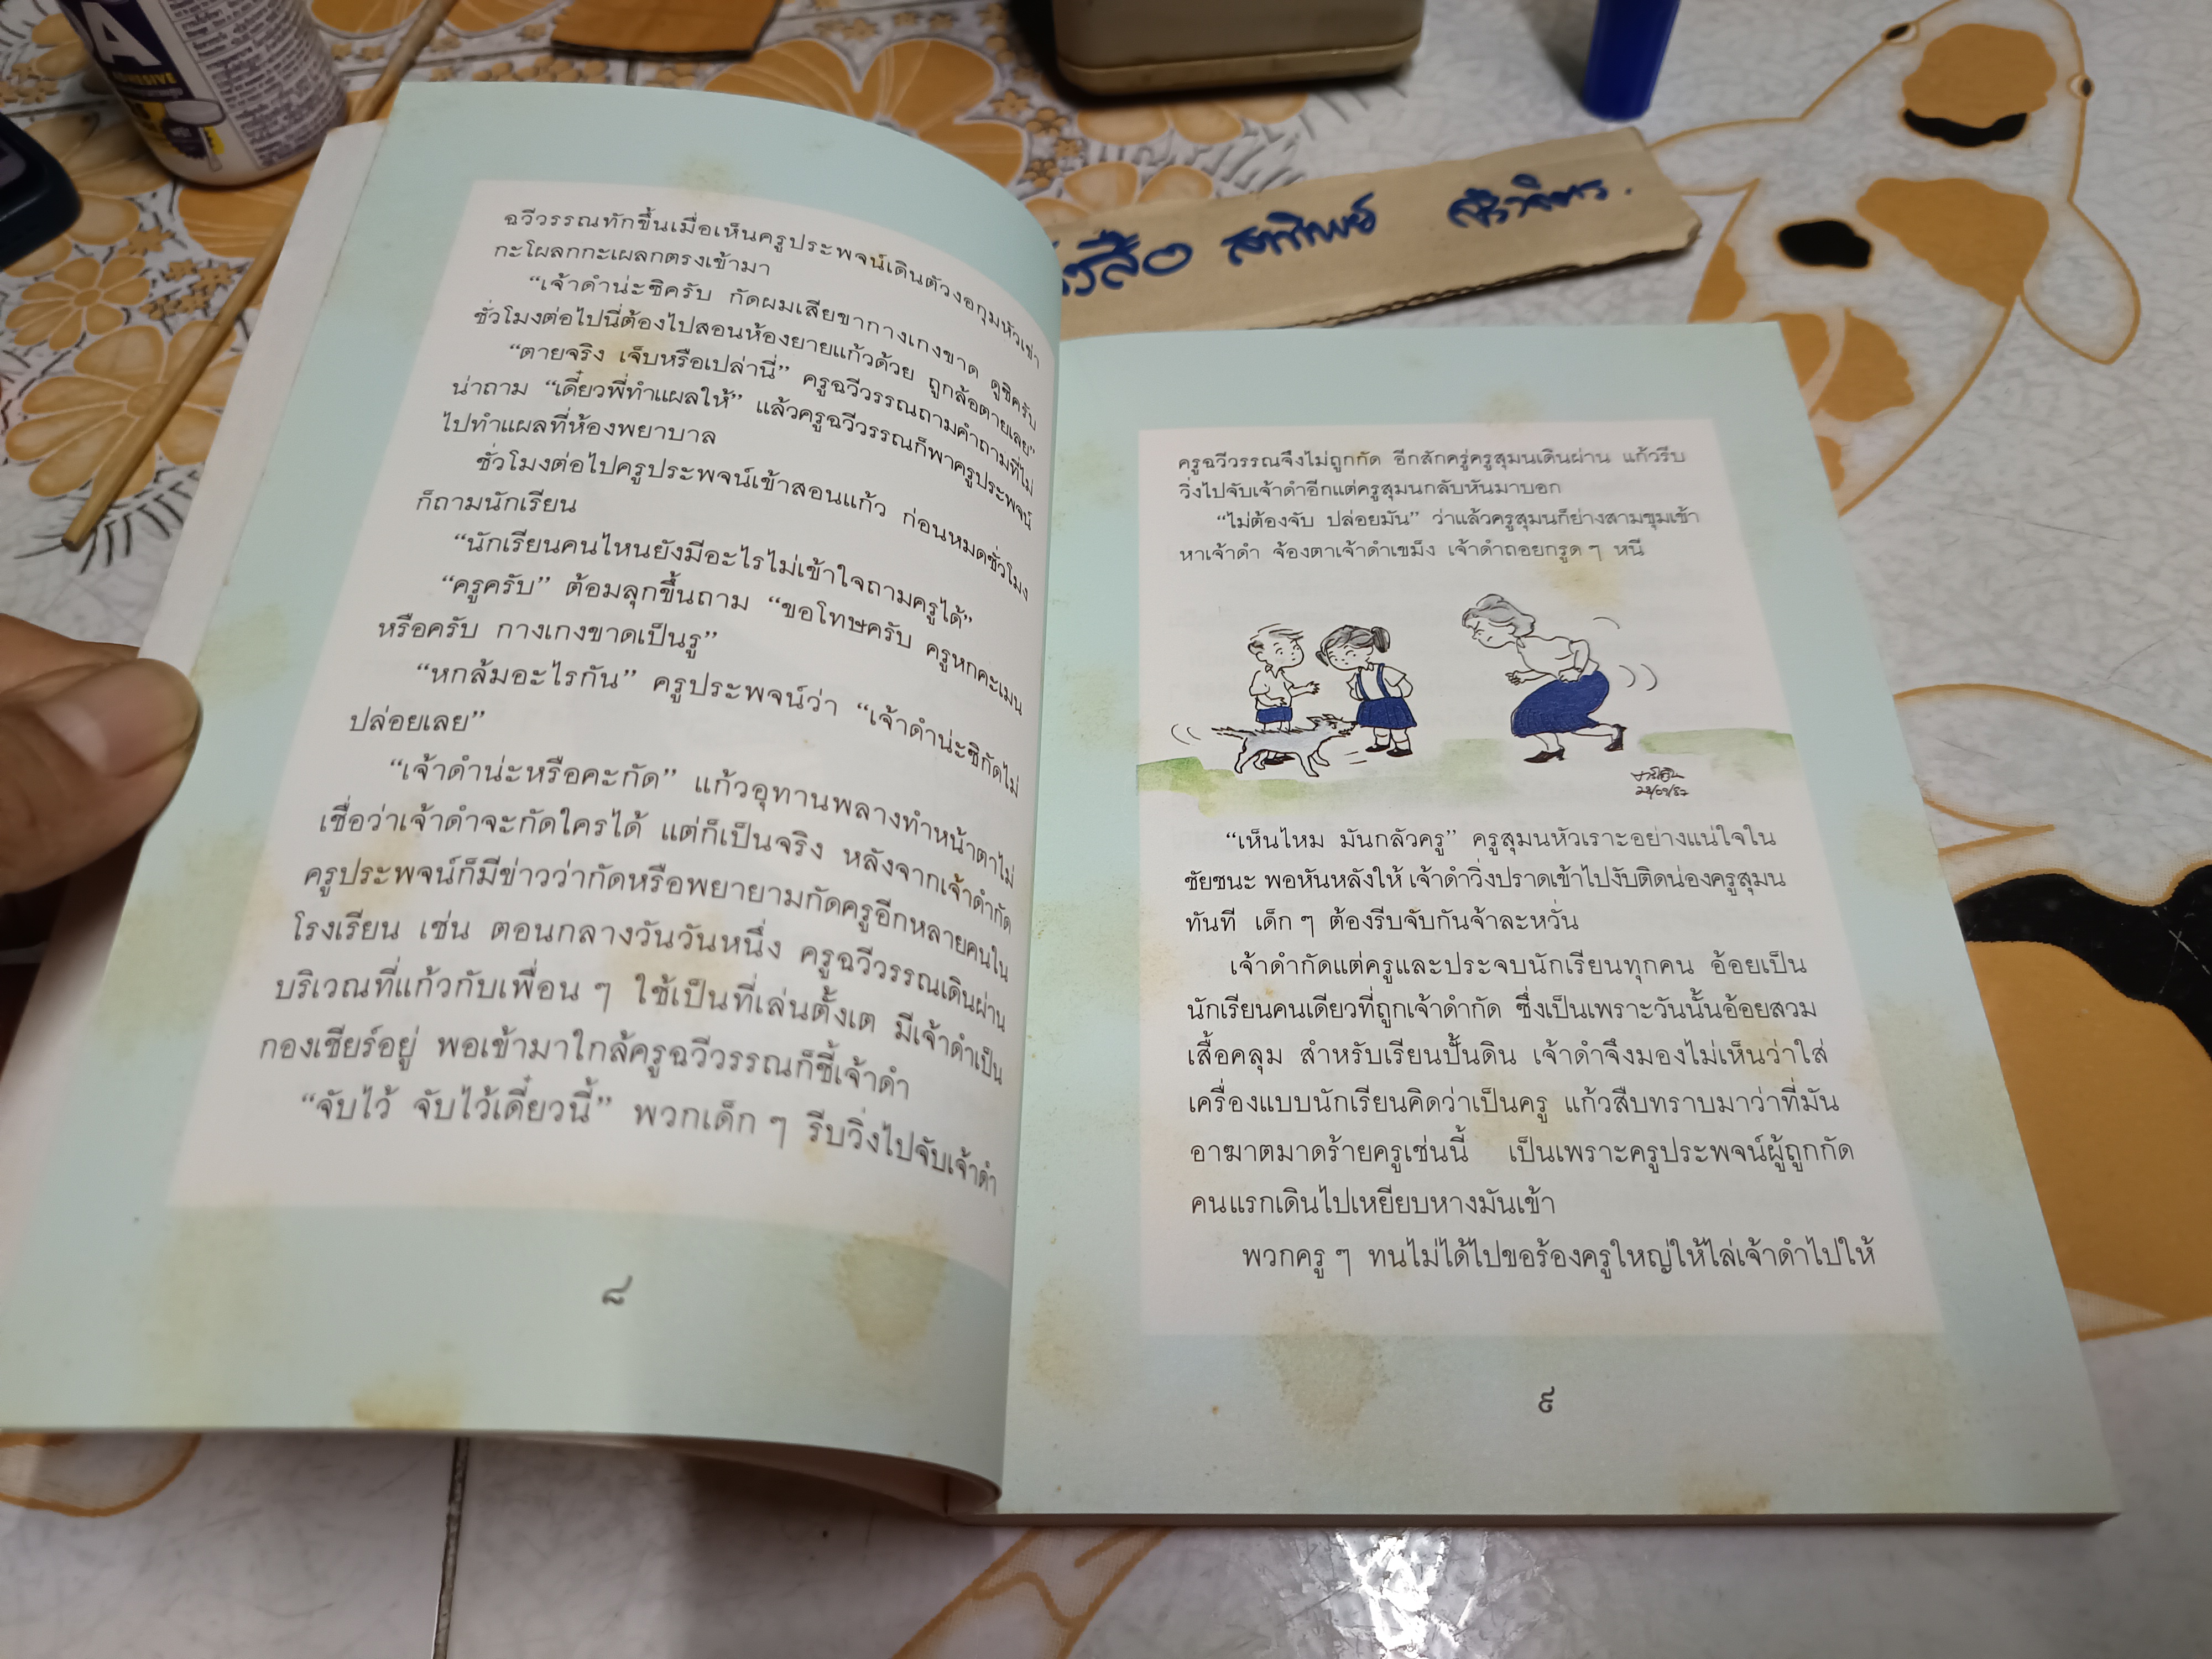 A
ADHESIVE
สุรวิทย์
ฉวีวรรณทักขึ้นเมื่อเห็นครูประพจน์เดินตัวงอกุมหัวเข่า
กะโผลกกะเผลกตรงเข้ามา
“เจ้าดำน่ะซิครับ กัดผมเสียขากางเกงขาด ดูซิครับ
ชั่วโมงต่อไปนี่ต้องไปสอนห้องยายแก้วด้วย ถูกล้อตายเลย”
“ตายจริง เจ็บหรือเปล่านี่” ครูฉวีวรรณถามคำถามที่ไม่
น่าถาม “เดี๋ยวพี่ทำแผลให้” แล้วครูฉวีวรรณก็พาครูประพจน์
ไปทำแผลที่ห้องพยาบาล
ชั่วโมงต่อไปครูประพจน์เข้าสอนแก้ว ก่อนหมดชั่วโมง
ก็ถามนักเรียน
“นักเรียนคนไหนยังมีอะไรไม่เข้าใจถามครูได้”
“ครูครับ” ต้อมลุกขึ้นถาม “ขอโทษครับ ครูหกคะเมน
หรือครับ กางเกงขาดเป็นรู”
“หกล้มอะไรกัน” ครูประพจน์ว่า “เจ้าดำน่ะซิกัดไม่
ปล่อยเลย”
“เจ้าดำน่ะหรือคะกัด” แก้วอุทานพลางทำหน้าตาไม่
เชื่อว่าเจ้าดำจะกัดใครได้ แต่ก็เป็นจริง หลังจากเจ้าดำกัด
ครูประพจน์ก็มีข่าวว่ากัดหรือพยายามกัดครูอีกหลายคนใน
โรงเรียน เช่น ตอนกลางวันวันหนึ่ง ครูฉวีวรรณเดินผ่าน
บริเวณที่แก้วกับเพื่อน ๆ ใช้เป็นที่เล่นตั้งเต มีเจ้าดำเป็น
กองเชียร์อยู่ พอเข้ามาใกล้ครูฉวีวรรณก็ชี้เจ้าดำ
“จับไว้ จับไว้เดี๋ยวนี้” พวกเด็ก ๆ รีบวิ่งไปจับเจ้าดำ
๘
ครูฉวีวรรณจึงไม่ถูกกัด อีกสักครู่ครูสุมนเดินผ่าน แก้วรีบ
วิ่งไปจับเจ้าดำอีกแต่ครูสุมนกลับหันมาบอก
“ไม่ต้องจับ ปล่อยมัน” ว่าแล้วครูสุมนก็ย่างสามขุมเข้า
หาเจ้าดำ จ้องตาเจ้าดำเขม็ง เจ้าดำถอยกรูด ๆ หนี
“เห็นไหม มันกลัวครู” ครูสุมนหัวเราะอย่างแน่ใจใน
ชัยชนะ พอหันหลังให้ เจ้าดำวิ่งปราดเข้าไปงับติดน่องครูสุมน
ทันที เด็ก ๆ ต้องรีบจับกันจ้าละหวั่น
เจ้าดำกัดแต่ครูและประจบนักเรียนทุกคน อ้อยเป็น
นักเรียนคนเดียวที่ถูกเจ้าดำกัด ซึ่งเป็นเพราะวันนั้นอ้อยสวม
เสื้อคลุม สำหรับเรียนปั้นดิน เจ้าดำจึงมองไม่เห็นว่าใส่
เครื่องแบบนักเรียนคิดว่าเป็นครู แก้วสืบทราบมาว่าที่มัน
อาฆาตมาดร้ายครูเช่นนี้ เป็นเพราะครูประพจน์ผู้ถูกกัด
คนแรกเดินไปเหยียบหางมันเข้า
พวกครู ๆ ทนไม่ได้ไปขอร้องครูใหญ่ให้ไล่เจ้าดำไปให้
๙